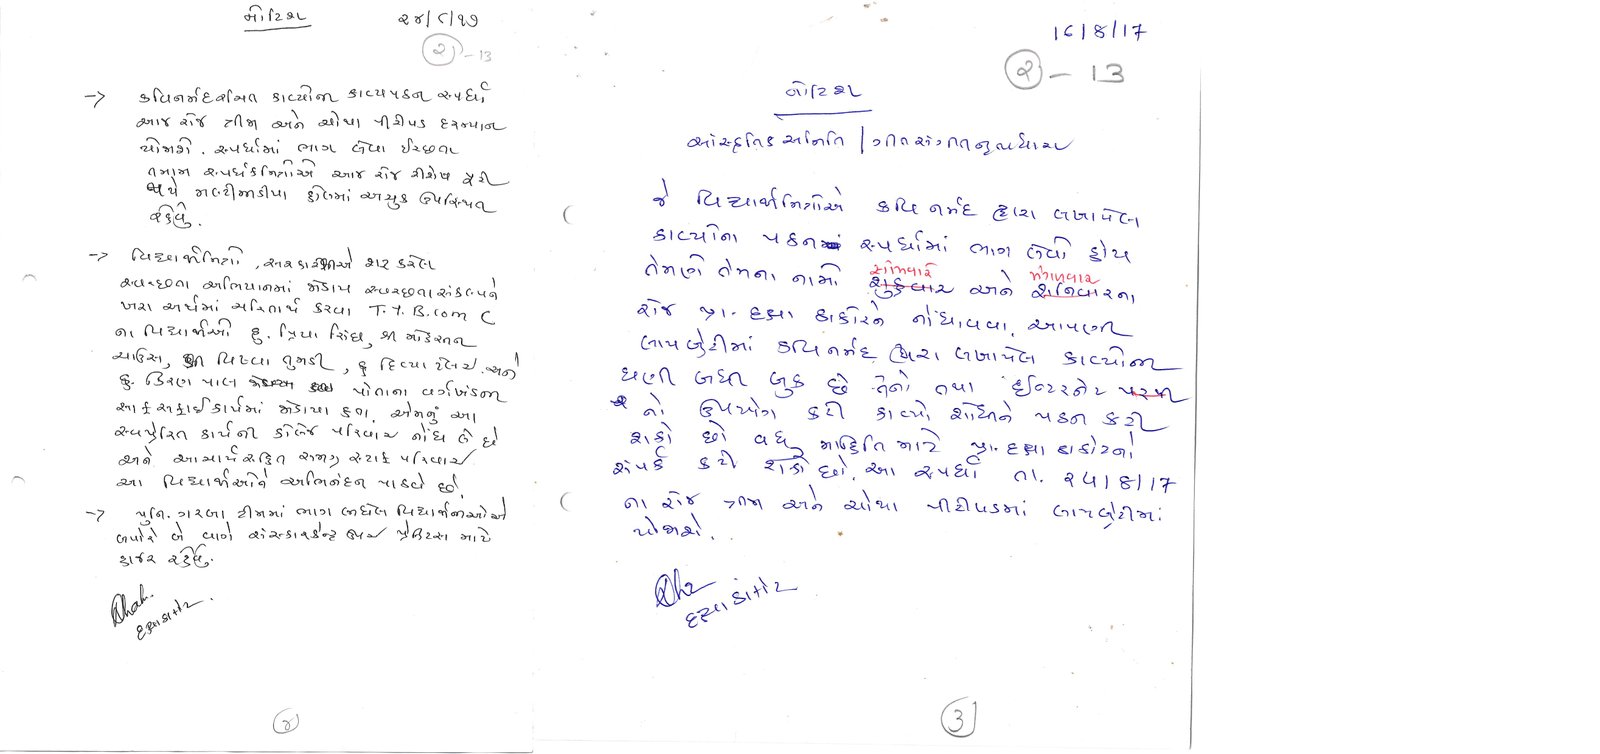 નોટિશ
૨૪/૮/૧૭
(૨) - 13
→ કવિ નર્મદ રચિત કાવ્યોના કાવ્યપઠન સ્પર્ધા
આજ રોજ ત્રીજા અને ચોથા પીરીયડ દરમ્યાન
યોજાશે. સ્પર્ધામાં ભાગ લેવા ઈચ્છતા
તમામ સ્પર્ધકમિત્રોએ આજ રોજ રીશેષ પૂરી
થયે મલ્ટીમીડીયા હોલમાં અચુક ઉપસ્થિત
રહેવું.
→ વિદ્યાર્થીમિત્રો, સરકારશ્રીએ શરૂ કરેલ
સ્વચ્છતા અભિયાનમાં જોડાય સ્વચ્છતા સંકલ્પને
ખરા અર્થમાં ચરિતાર્થ કરવા T.Y.B.com C
ના વિદ્યાર્થીઓ કુ. પ્રિયા સિંઘ, શ્રી
કુ. કિરણ પાલ પોતાના વર્ગખંડના
સાફ સફાઈ કાર્યમાં જોડાયા હતા. એમનું આ
સ્વપ્રેરિત કાર્યની કોલેજ પરિવાર નોંધ લે છે
અને આચાર્ય સહિત સમગ્ર સ્ટાફ પરિવાર
આ વિદ્યાર્થીઓને અભિનંદન પાઠવે છે.
→ યુનિ. ગરબા ટીમમાં ભાગ લીધેલ વિદ્યાર્થીનીઓએ
બપોરે બે વાગે પ્રેક્ટિસ માટે
હાજર રહેવું.
દક્ષા ઠાકોર
(૪)
16/8/17
(૨) - 13
નોટિશ
સાંસ્કૃતિક સમિતિ / ગીતસંગીતનૃત્યધારા
જે વિદ્યાર્થીમિત્રોએ કવિ નર્મદ દ્વારા લખાયેલ
કાવ્યોના પઠન સ્પર્ધામાં ભાગ લેવો હોય
સોમવાર મંગળવાર
તેમણે તેમના નામો શુક્રવાર અને શનિવારના
રોજ પ્રા. દક્ષા ઠાકોરને નોંધાવવા. આપણી
લાયબ્રેરીમાં કવિ નર્મદ દ્વારા લખાયેલ કાવ્યોના
ઘણી બધી બુક છે તેનો તથા ઈન્ટરનેટ
નો ઉપયોગ કરી કાવ્યો શોધીને પઠન કરી
શકો છો વધુ માહિતિ માટે પ્રા. દક્ષા ઠાકોરનો
સંપર્ક કરી શકો છો. આ સ્પર્ધા તા. ૨૫/8/17
ના રોજ ત્રીજા અને ચોથા પીરીયડમાં લાયબ્રેરીમાં
યોજાશે.
દક્ષા ઠાકોર
(3)